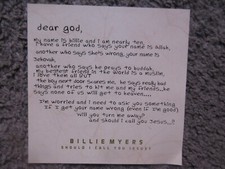 dear god,
my name is billie and i am nearly ten.
i have a friend who says your name is allah,
another who says she's wrong, your name is
Jehovah,
another who says he prays to buddah,
my bestest friend in the world is a muslim,
i love them all BUT
the boy next door scares me, he says really bad
things and tries to hit me and my friends, he says
none of us will get to heaven....
i'm worried and i need to ask you something
if i get your name wrong (even if i'm good)
will you turn me away?
and should i call you Jesus...?
BILLIE MYERS
SHOULD I CALL YOU JESUS?